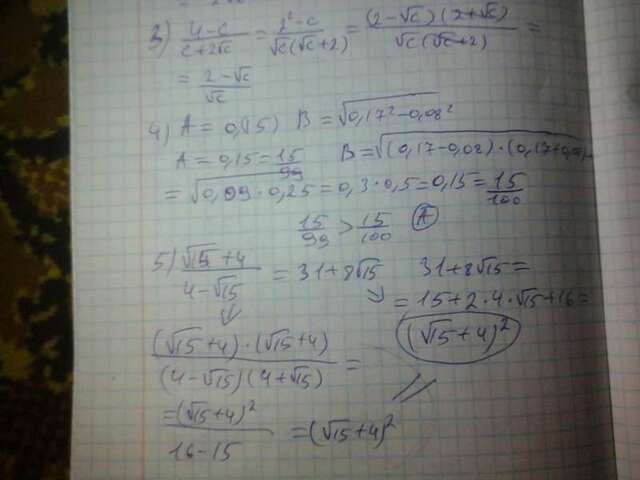 3) (4-c)/(c+2√c) = (2²-c)/(√c(√c+2)) = ((2-√c)(2+√c))/(√c(√c+2)) =
= (2-√c)/√c
4) A = 0,(15) B = √(0,17²-0,08²)
A = 0,15 = 15/99 B = √((0,17-0,08)·(0,17+0,08))
= √(0,09·0,25) = 0,3·0,5 = 0,15 = 15/100
15/99 > 15/100 A
5) (√15+4)/(4-√15) = 31+8√15 31+8√15 =
= 15+2·4·√15+16 =
(√15+4)²
((√15+4)·(√15+4))/((4-√15)(4+√15)) =
= (√15+4)²/(16-15) = (√15+4)²